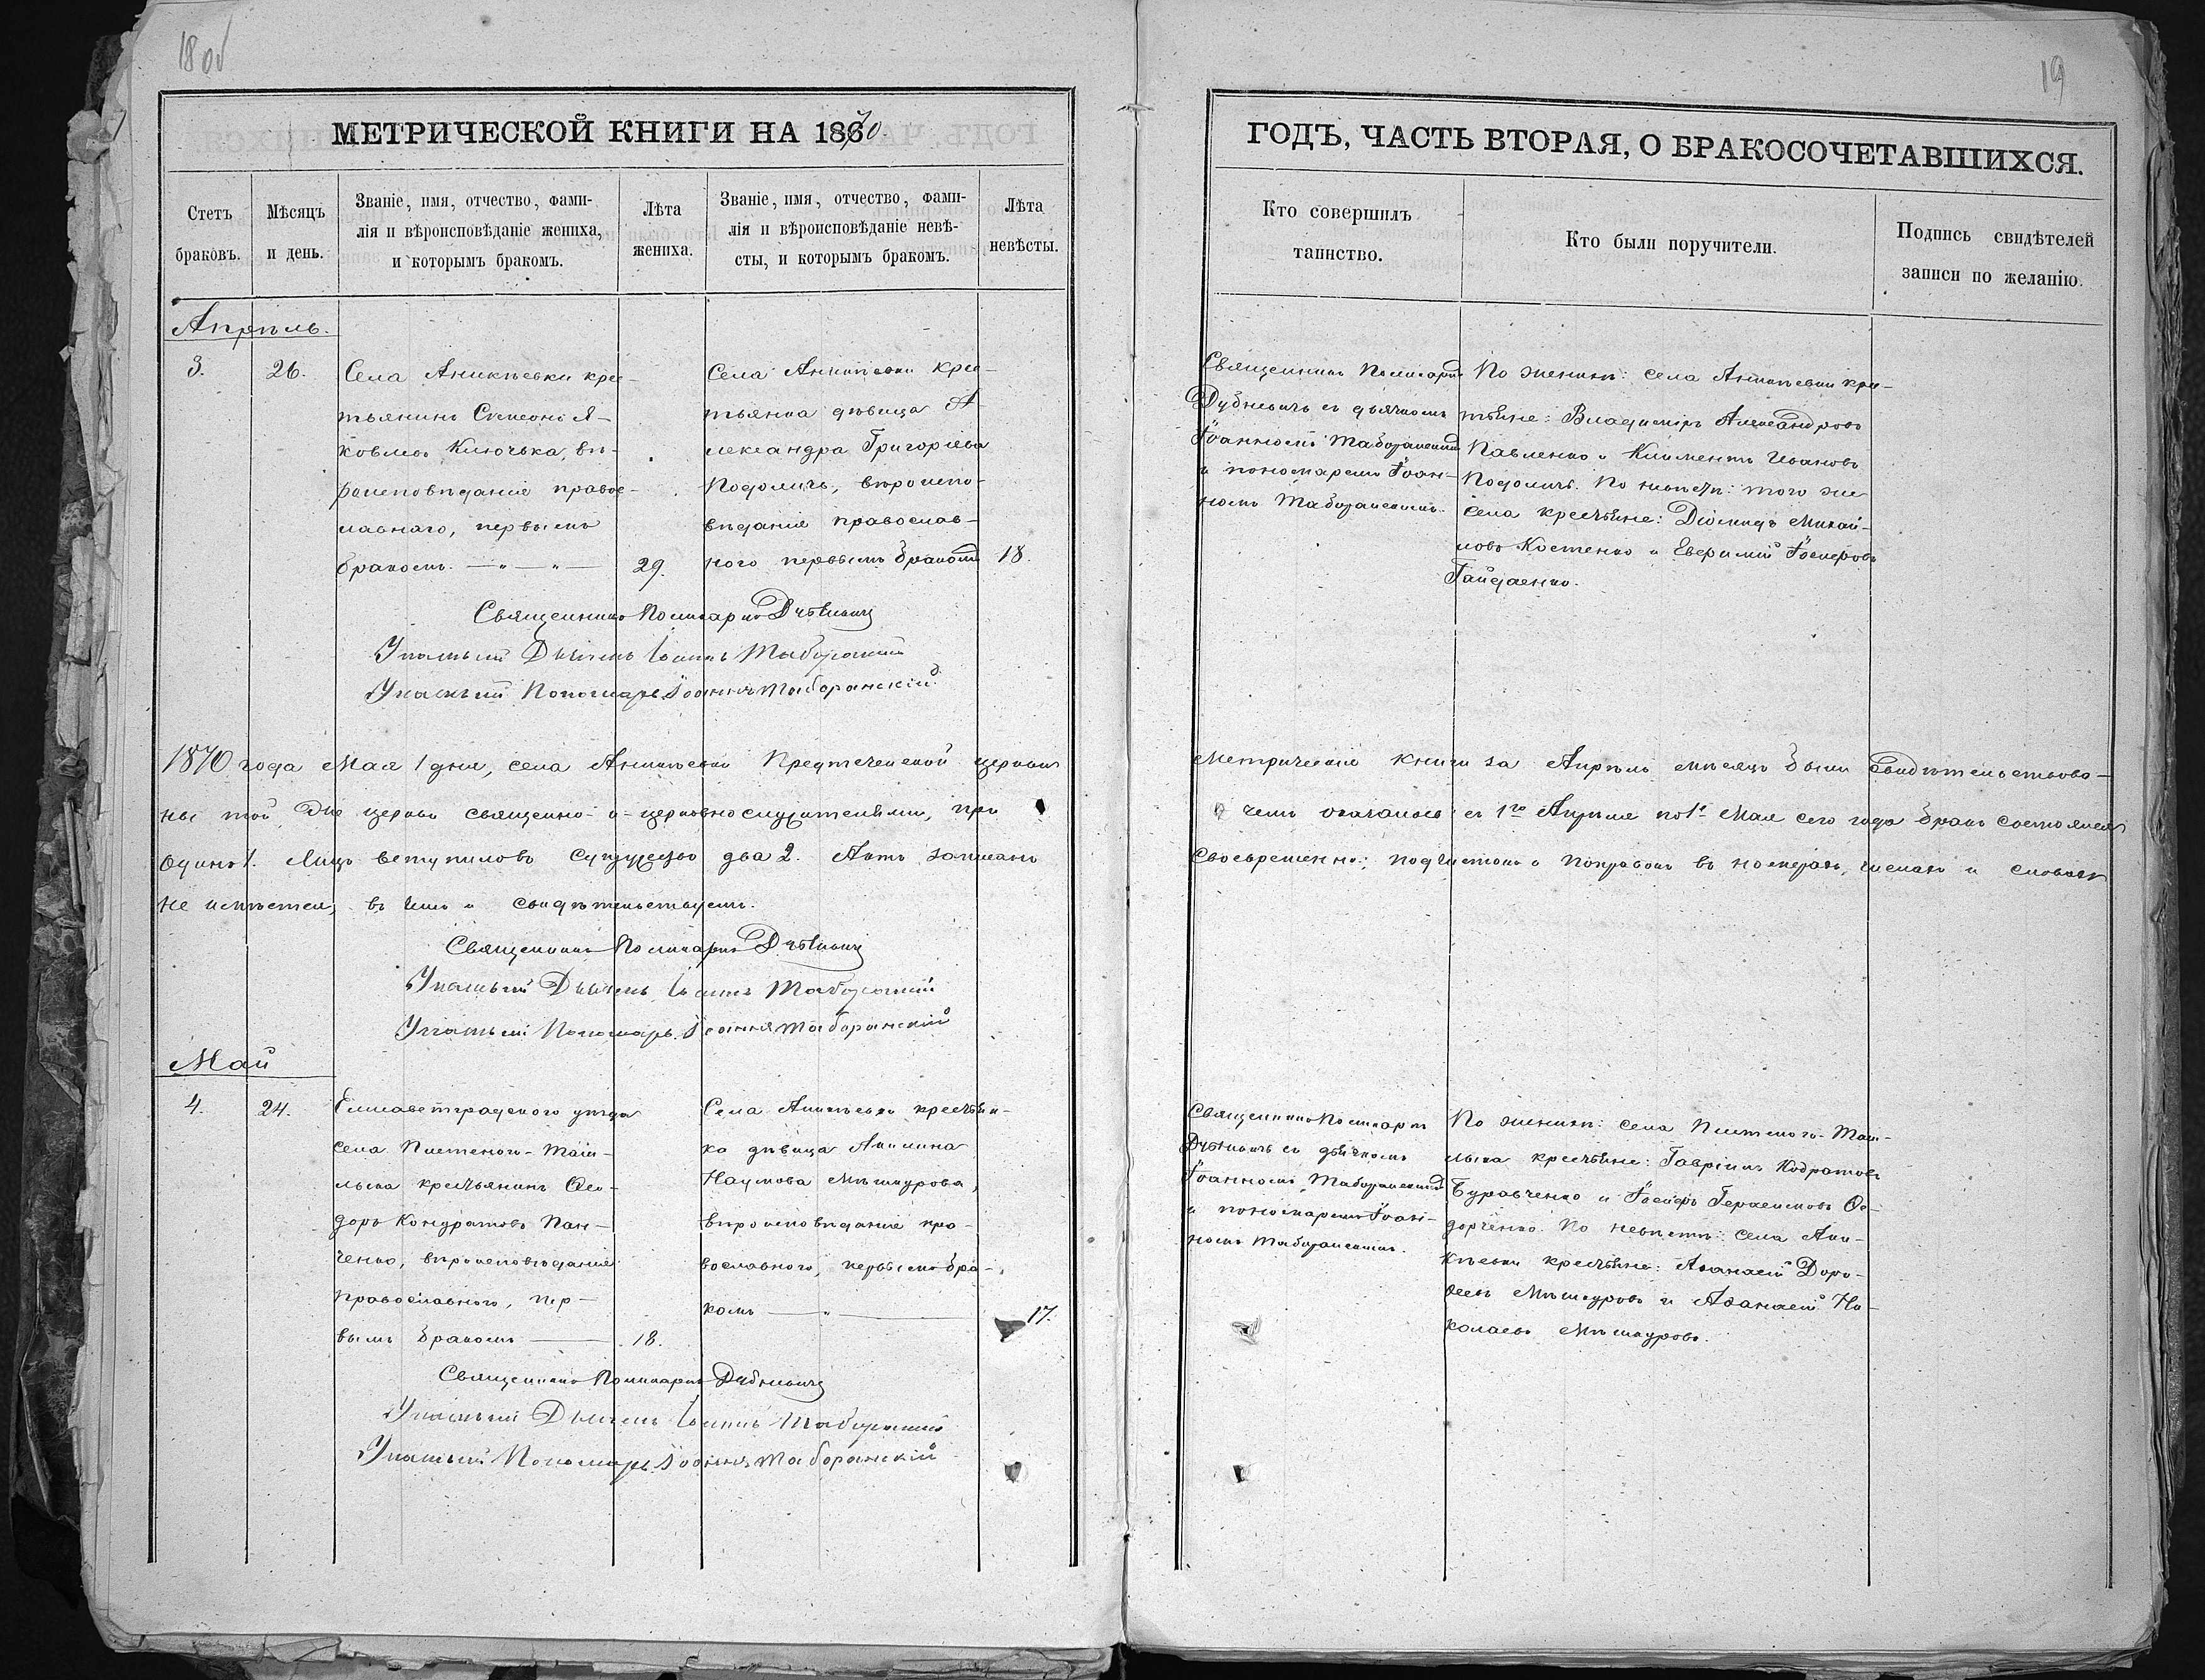 18 об
19
МЕТРИЧЕСКОЙ КНИГИ НА 1870
ГОДЪ, ЧАСТЬ ВТОРАЯ, О БРАКОСОЧЕТАВШИХСЯ.
Счетъ
браковъ.
Мѣсяцъ
и день.
Званіе, имя, отчество, фами-
лія и вѣроисповѣданіе жениха,
и которымъ бракомъ.
Лѣта
жениха.
Званіе, имя, отчество, фами-
лія и вѣроисповѣданіе невѣ-
сты, и которымъ бракомъ.
Лѣта
невѣсты.
Кто совершилъ
таинство.
Кто были поручители.
Подпись свидѣтелей
записи по желанію.
Апрѣль.
3.
26.
Села Аникѣевки крес-
тьянинъ Симеонъ Я-
ковлевъ Ключка, вѣ-
роисповѣданія правос-
лавнаго, первымъ
бракомъ
29.
Села Аникѣевки крес-
тьянка дѣвица А-
лександра Григоріева
Подоличъ, вѣроиспо-
вѣданія православ-
ного первымъ бракомъ
18.
Священникъ Поликарпъ
Дубневичъ съ дьячкомъ
Іоанномъ Таборанскимъ
и пономаремъ Іоан-
номъ Таборанскимъ.
По женихѣ: села Аникѣевки крес-
тьяне: Владиміръ Александровъ
Павленко и Климентъ Ивановъ
Подоличъ. По невѣстѣ: того же
села крестьяне: Діомидъ Михай-
ловъ Костенко и Евфимій Іосифовъ
Гайдаенко.
Священникъ Поликарпъ Дубневичъ
Указный Дьячекъ Іоаннъ Таборанскій
Указный Пономарь Іоаннъ Таборанскій
1870 года Мая 1 дня, села Аникѣевки Предтеченской церкви
Метрическія книги за Апрѣль мѣсяцъ были свидѣтельствова-
ны той же церкви священно- и церковнослужителями, при
чемъ оказалось: съ 1го Апрѣля по 1е Мая сего года бракъ состоялся
одинъ 1. Лицъ вступило въ супружество два 2. Актъ записанъ
своевременно; подчистокъ и поправокъ въ номерахъ, числахъ и словахъ
не имѣется, въ чемъ и свидѣтельствуемъ.
Священникъ Поликарпъ Дубневичъ
Указный Дьячекъ Іоаннъ Таборанскій
Указный Пономарь Іоаннъ Таборанскій
Май
4.
24.
Елисаветградского уѣзда
села Плетеного-Таш-
лыка крестьянинъ Ѳео-
доръ Кондратовъ Пан-
ченко, вѣроисповѣданія
православного, пер-
вымъ бракомъ
18.
Села Аникѣевки крестьян-
ка дѣвица Акилина
Наумова Мѣшкурова,
вѣроисповѣданія пра-
вославного, первымъ бра-
комъ
17.
Священникъ Поликарпъ
Дубневичъ съ дьячкомъ
Іоанномъ Таборанскимъ
и пономаремъ Іоан-
номъ Таборанскимъ.
По женихѣ: села Плетеного-Таш-
лыка крестьяне: Гавріилъ Кодратовъ
Буравченко и Іосифъ Герасимовъ Ѳе-
дорченко. По невѣстѣ: села Ани-
кѣевки крестьяне: Аѳанасій Доро-
ѳеевъ Мѣшкуровъ и Аѳанасій Ни-
колаевъ Мѣшкуровъ.
Священникъ Поликарпъ Дубневичъ
Указный Дьячекъ Іоаннъ Таборанскій
Указный Пономарь Іоаннъ Таборанскій